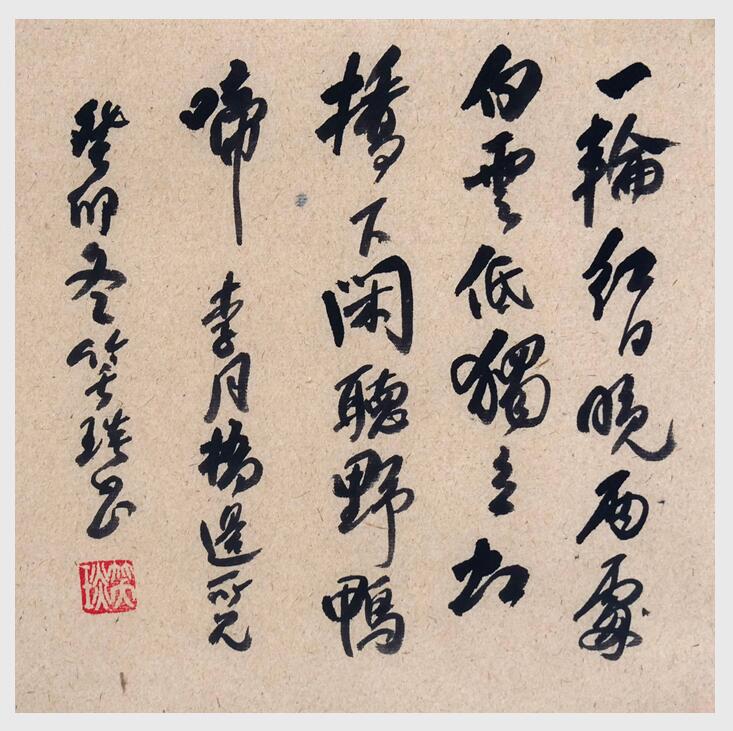 一輪紅日晚雨霽
白雲低獨立虹
橋下閑聽野鴨
啼 李月橋邊所見
癸卯冬笑書